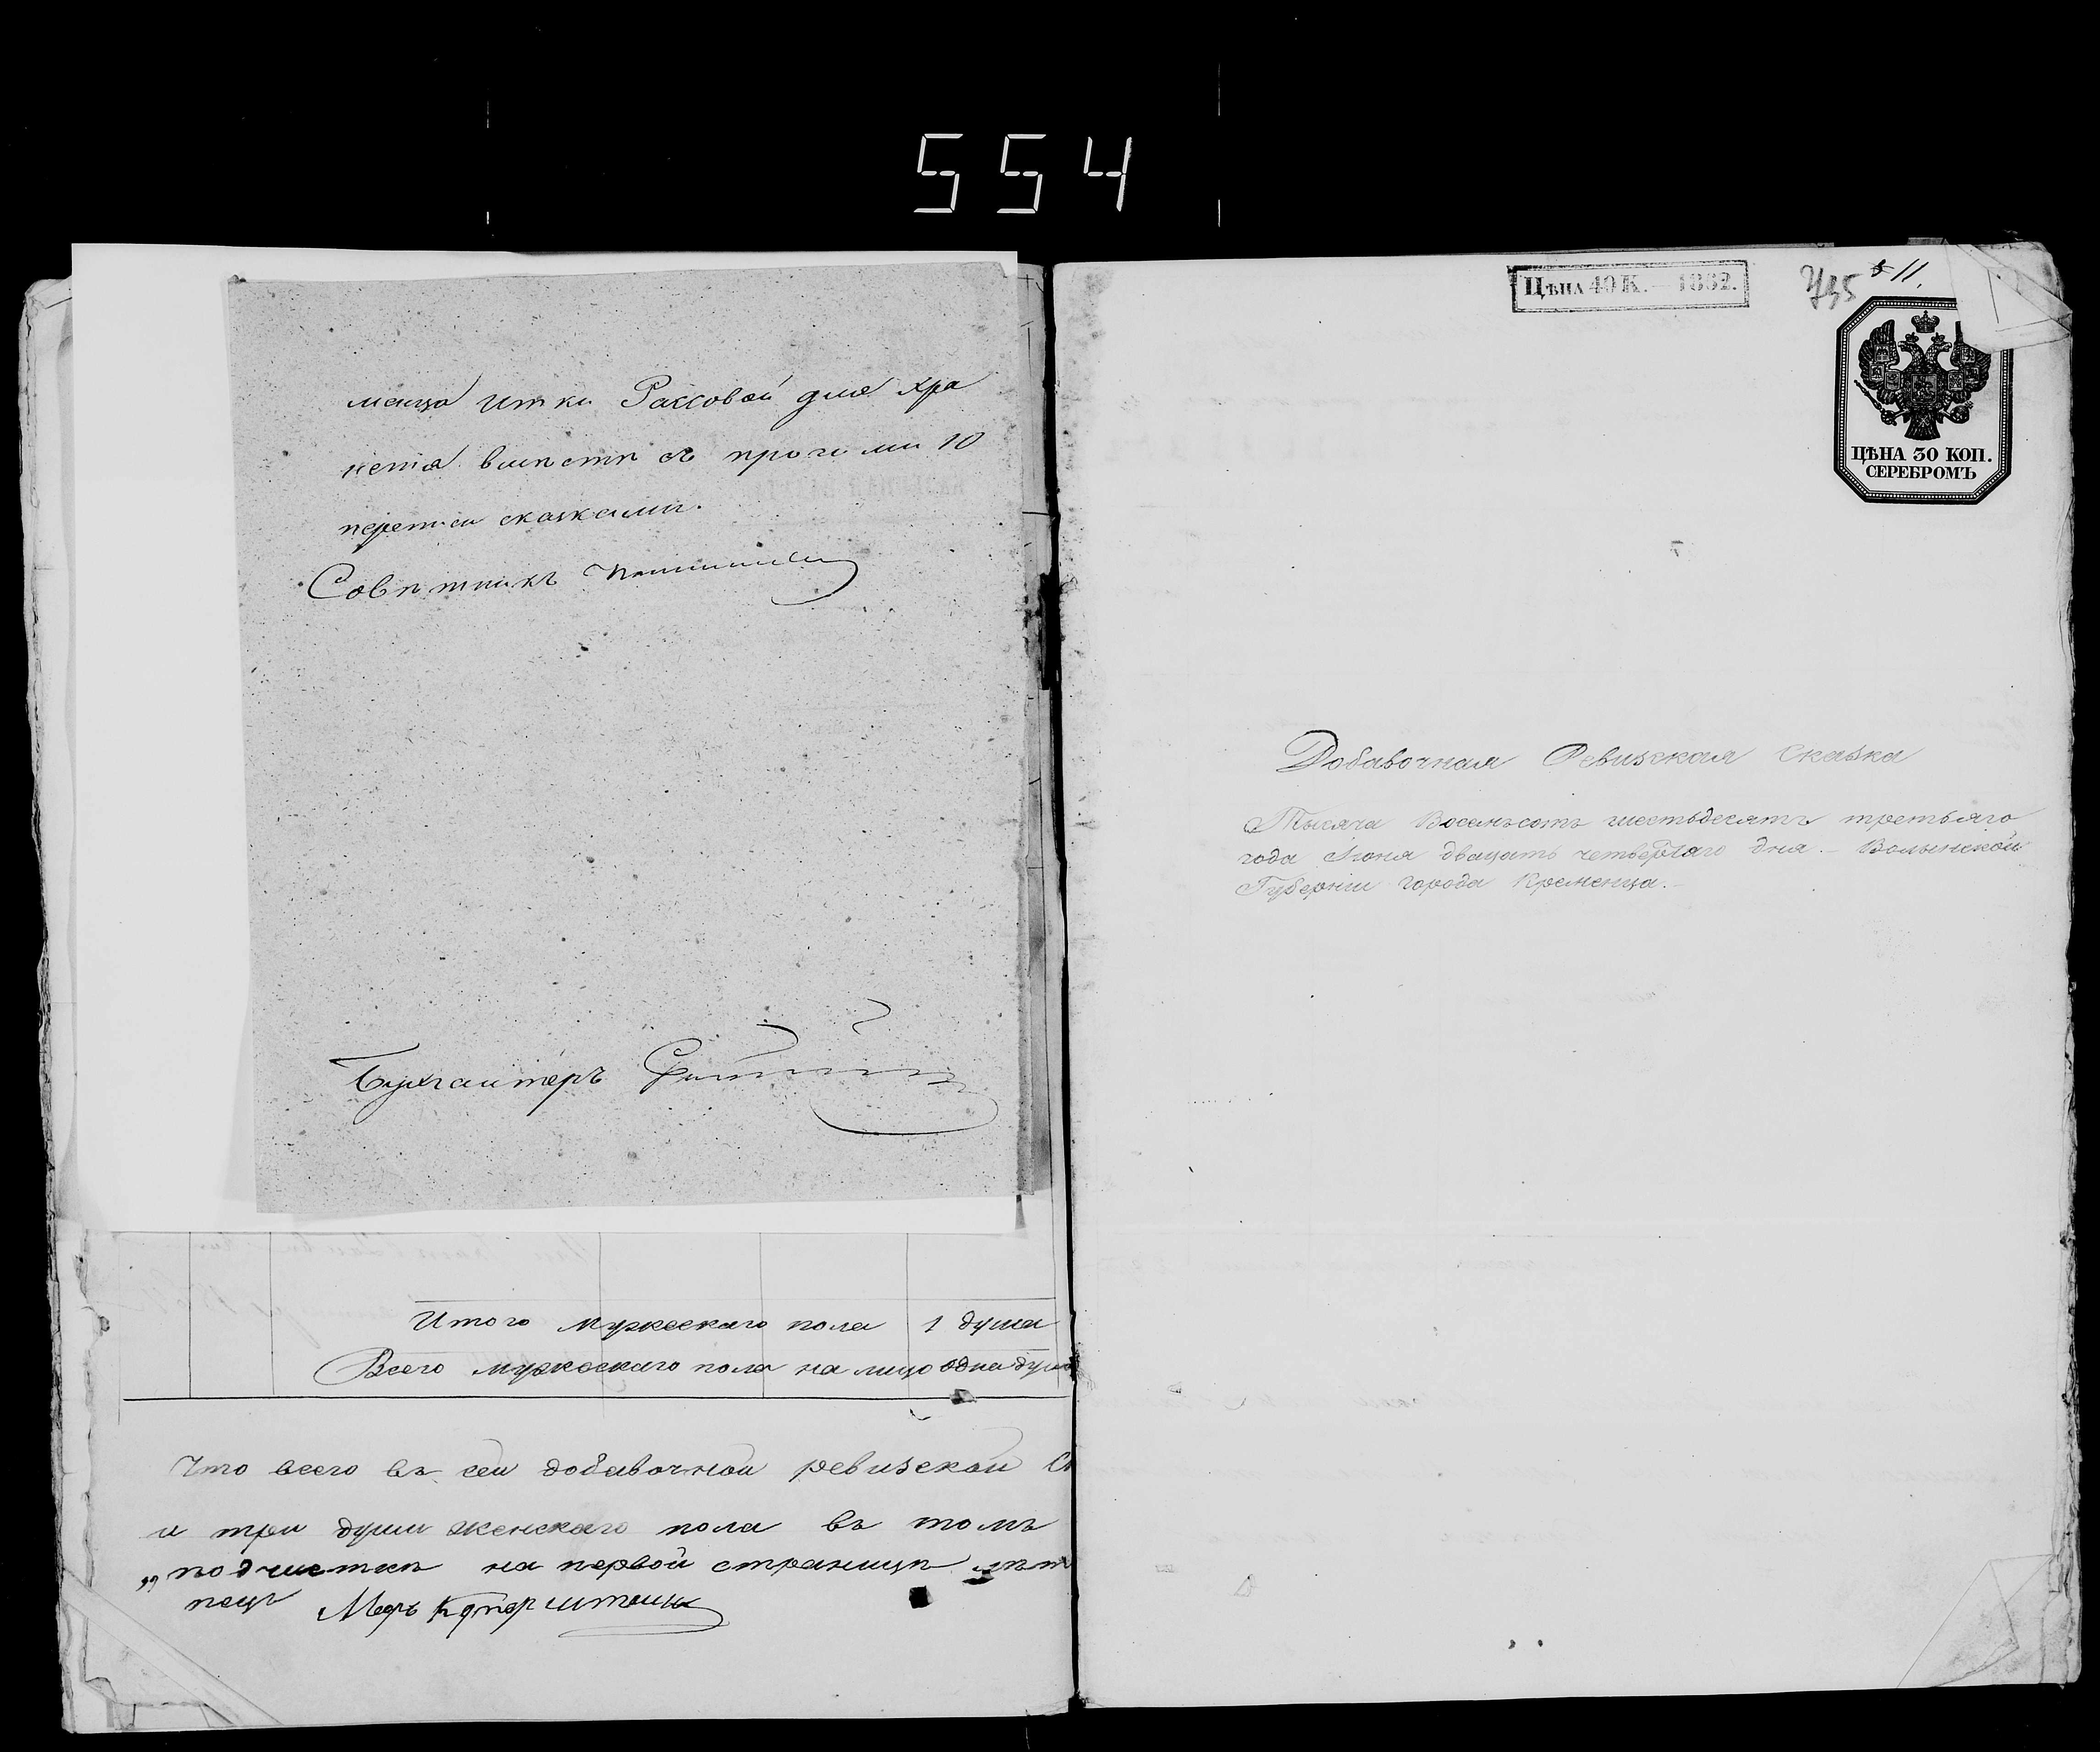 554
менца Итки Рассовой для хра
нетя вместѣ съ прочими 10
переписи сказками.
Совѣтникъ
Бухгалтеръ
Итого мужескаго пола 1 душа
Всего мужескаго пола на лицо одна душа
Что всего въ сей добавочной ревизской С
и три души женскаго пола въ томъ
„подчисткѣ на первой страницѣ лѣт
пецъ Меръ
Цѣна 40 К. — 1862.
11.
ЦѢНА 30 КОП.
СЕРЕБРОМЪ
Добавочная Ревизская Сказка
Тысяча Восемьсотъ шестьдесятъ третьяго
года Июня двацать четвертаго дня. — Волынской
Губерніи города Кременца. —